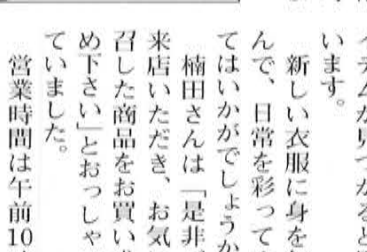 テムが見つかると
います。
新しい衣服に身を
んで、日常を彩って
てはいかがでしょうか
楠田さんは「是非、
来店いただき、お気
召した商品をお買い求
め下さい」とおっしゃ
ていました。
営業時間は午前10